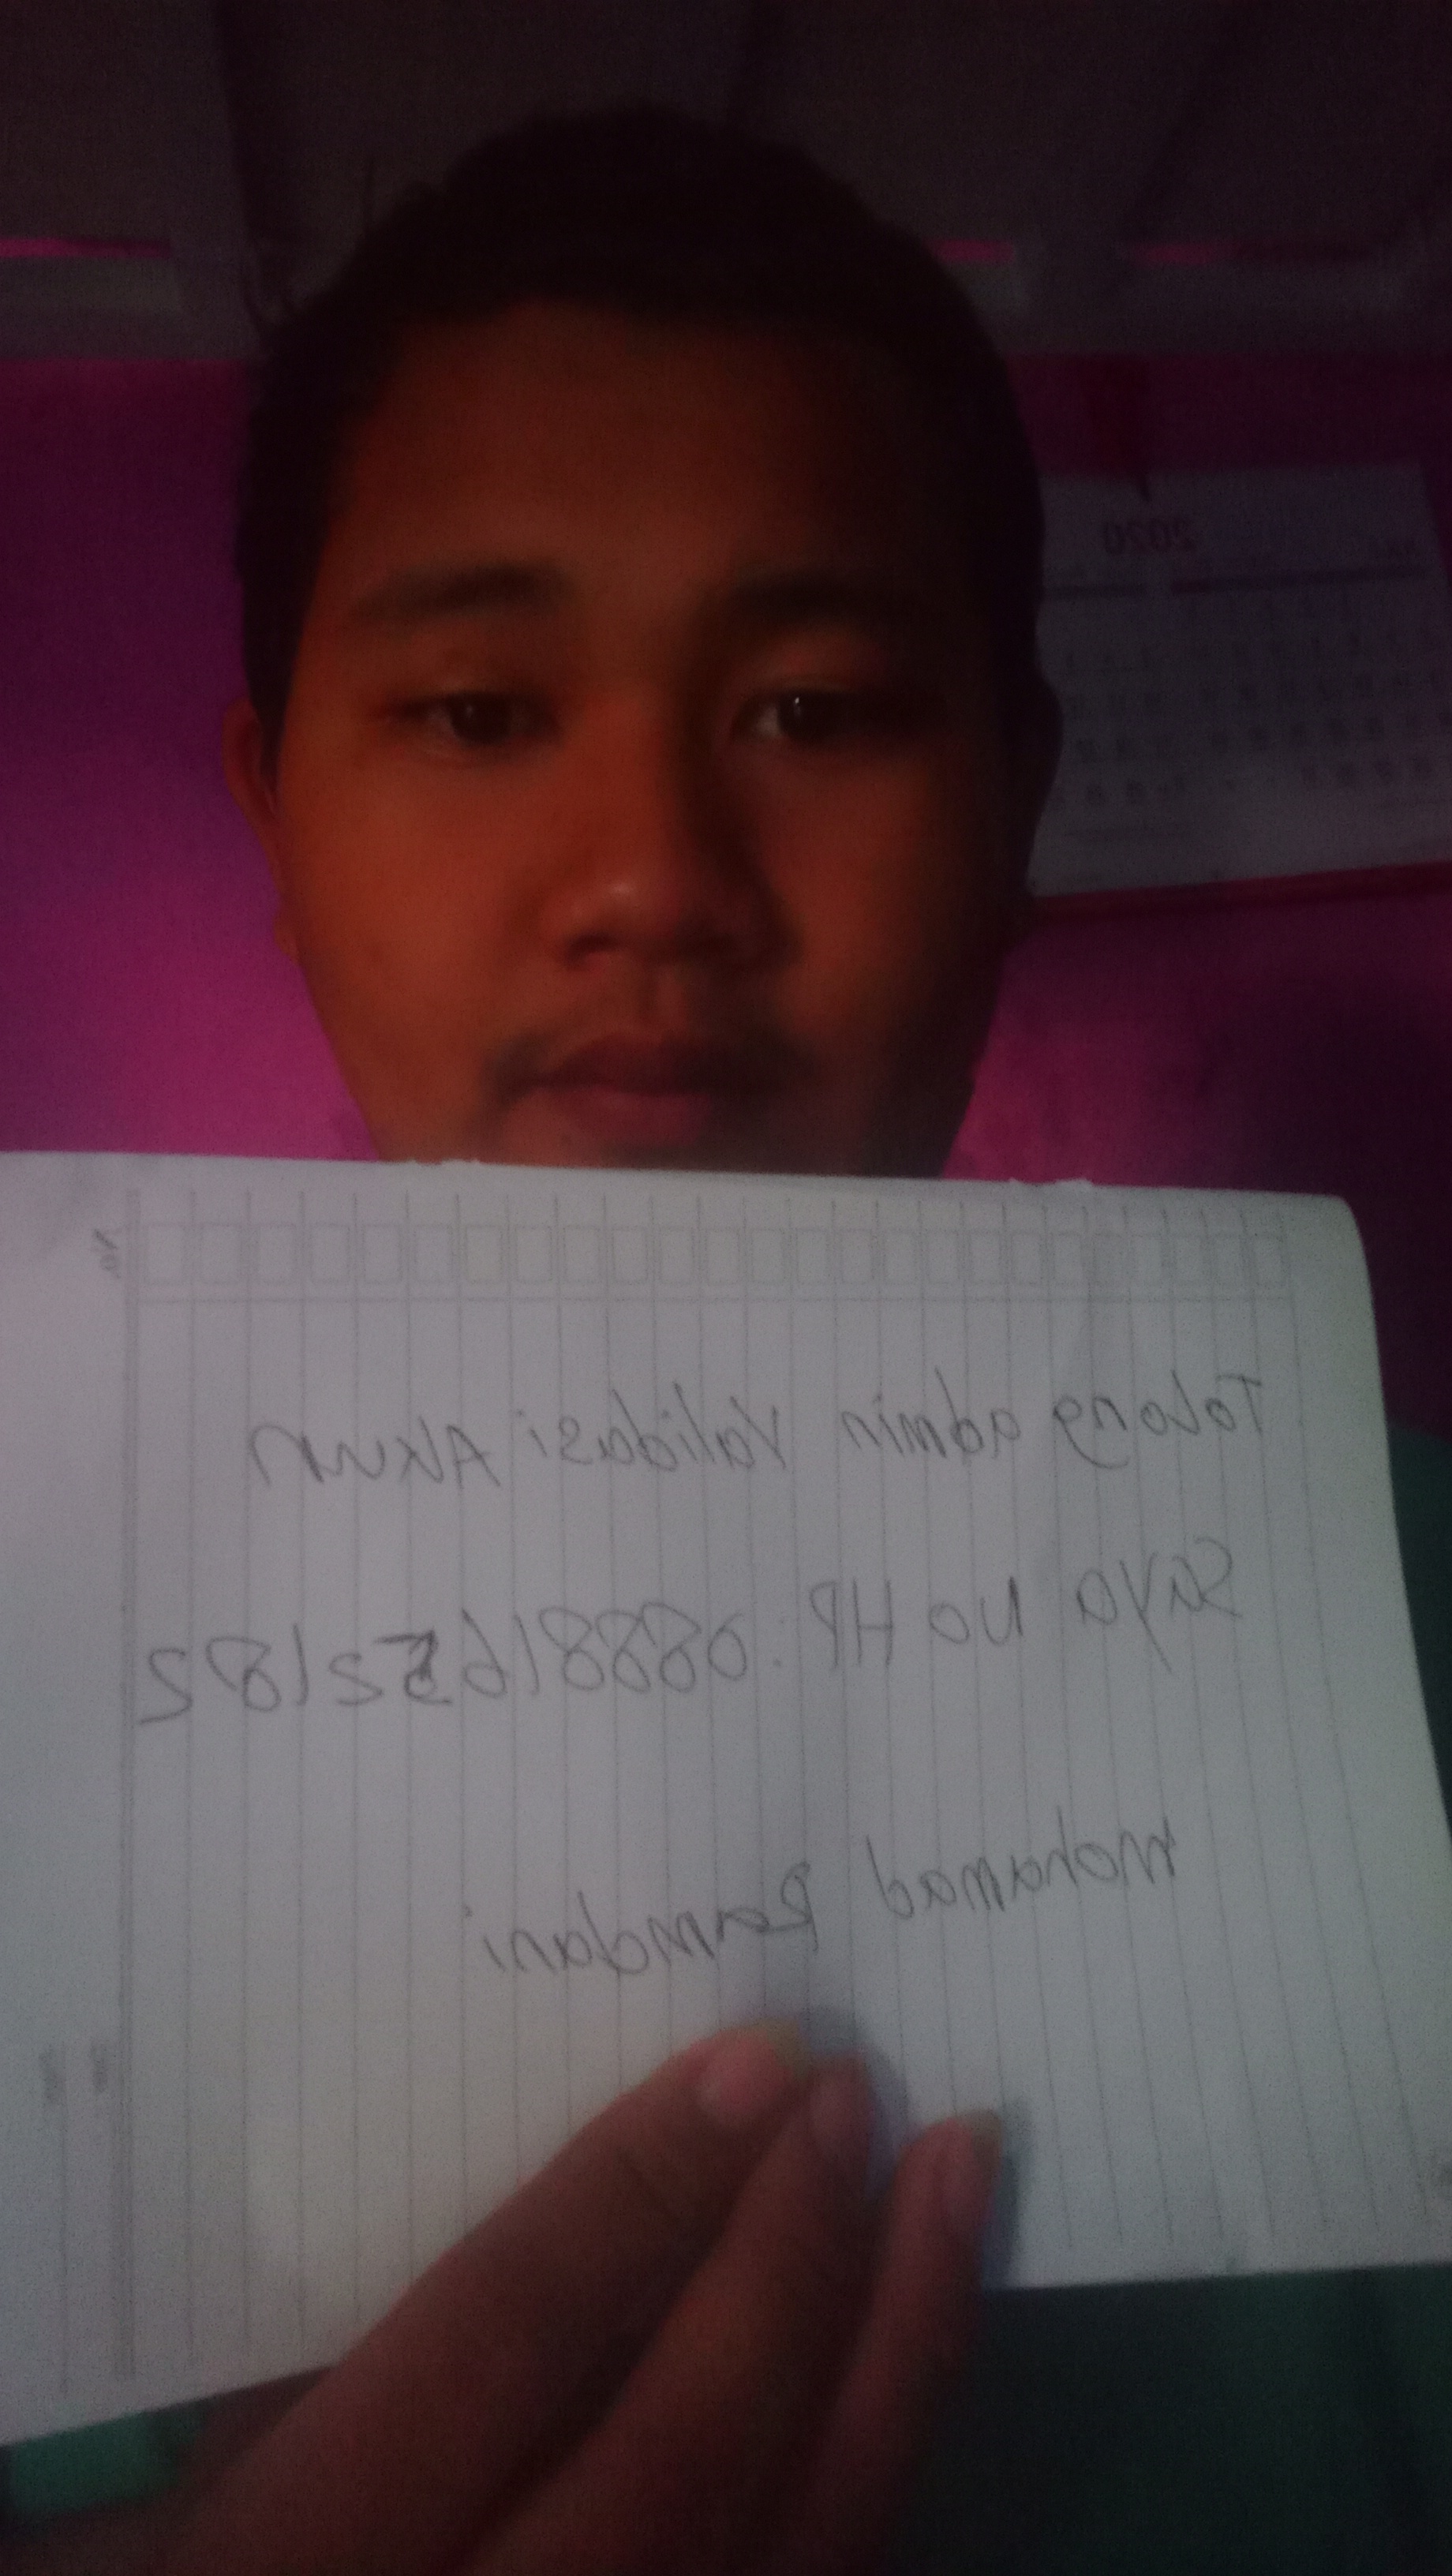 2020
No.
Tolong admin Validasi Akun
Saya no HP : 088816251852
Mohamad Ramdani